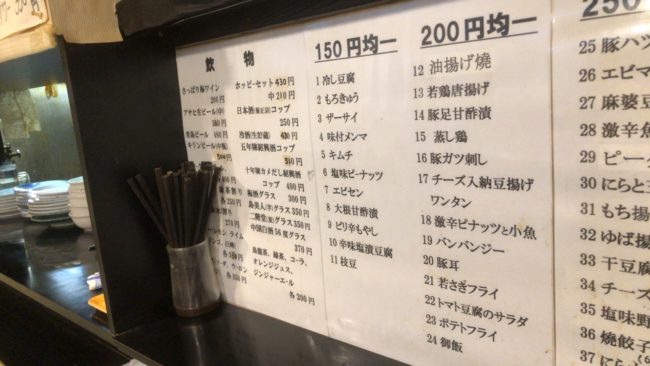 飲物
さっぱり梅ワイン
200円
アサヒ生ビール(中)
キリンビール(中瓶)
ホッピーセット430円
中210円
コップ
250円
五年陳紹興酒コップ
十年陳カメだし紹興酒
コップ400円
梅酒グラス300円
島美人(芋)グラス350円
二階堂(麦)グラス350円
中国白酒56度グラス
370円
烏龍茶、緑茶、コーラ、
オレンジジュース、
ジンジャーエール
各200円
150円均一
1 冷し豆腐
2 もろきゅう
3 ザーサイ
4 味付メンマ
5 キムチ
6 塩味ピーナッツ
7 エビセン
8 大根甘酢漬
9 ピリ辛もやし
10 辛味塩漬豆腐
11 枝豆
200円均一
12 油揚げ焼
13 若鶏唐揚げ
14 豚足甘酢漬
15 蒸し鶏
16 豚ガツ刺し
17 チーズ入納豆揚げ
ワンタン
18 激辛ピナッツと小魚
19 バンバンジー
20 豚耳
21 若さぎフライ
22 トマト豆腐のサラダ
23 ポテトフライ
24 御飯
250
25 豚ハツ
26 エビマ
27 麻婆豆
28 激辛魚
29 ピータ
30 にらと玉
31 もち揚
32 ゆば揚
33 干豆腐
34 チーズ
35 塩味野
36 焼餃子
37 にら